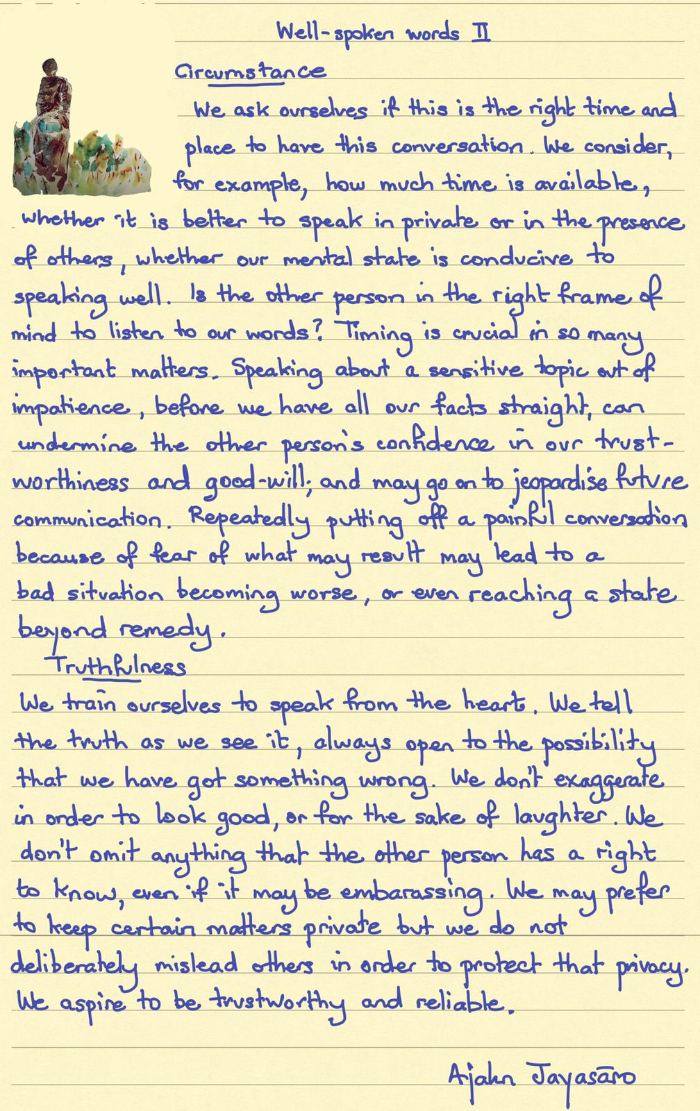 Well-spoken words II
Circumstance
We ask ourselves if this is the right time and
place to have this conversation. We consider,
for example, how much time is available,
whether it is better to speak in private or in the presence
of others, whether our mental state is conducive to
speaking well. Is the other person in the right frame of
mind to listen to our words? Timing is crucial in so many
important matters. Speaking about a sensitive topic out of
impatience, before we have all our facts straight, can
undermine the other person's confidence in our trust-
worthiness and good-will; and may go on to jeopardise future
communication. Repeatedly putting off a painful conversation
because of fear of what may result may lead to a
bad situation becoming worse, or even reaching a state
beyond remedy.
Truthfulness
We train ourselves to speak from the heart. We tell
the truth as we see it, always open to the possibility
that we have got something wrong. We don't exaggerate
in order to look good, or for the sake of laughter. We
don't omit anything that the other person has a right
to know, even if it may be embarassing. We may prefer
to keep certain matters private but we do not
deliberately mislead others in order to protect that privacy.
We aspire to be trustworthy and reliable.
Ajahn Jayasāro